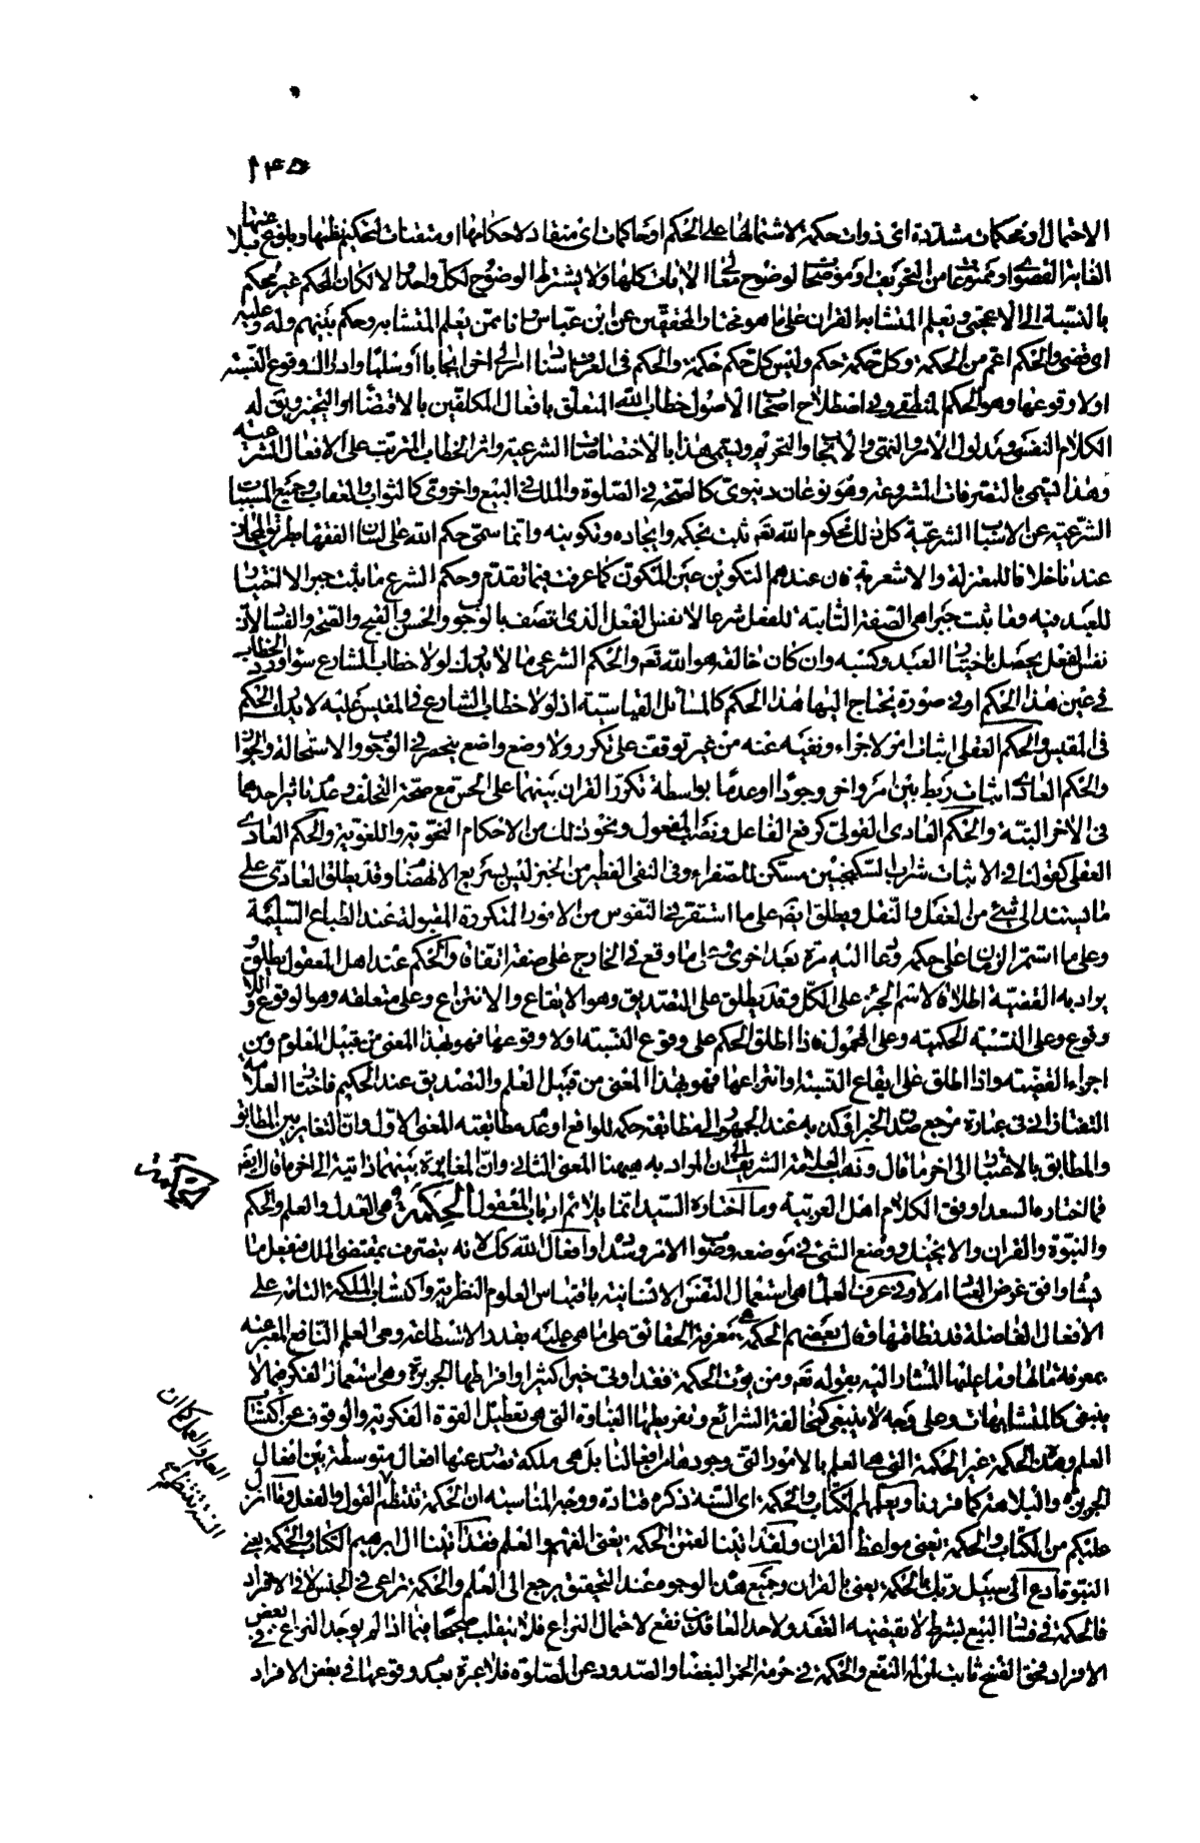 ١٤٥
الاحتمال او محكمات مشددة اى ذوات حكمة لاشتمالها على الحكم او حاكمات اى منقاد لاحكامها او متقنات لتحكيم نظمها وبلوغ بلاغتها
الغاية القصوى او ممنوعا من التحريف او موضحا لوضوح معانى الايات كلها ولا يشترط الوضوح لكل واحد والا لكان المحكم غير محكم
بالنسبة الى الاعجمى ويعلم المتشابه القران على ما هو مختار المحققين عن ابن عباس انا ممن يعلم المتشابه وحكم بينهم وله وعليه
اى قضى والحكم اعم من الحكمة وكل حكمة حكم وليس كل حكم حكمة والحكم فى العرف اسناد امر الى اخر ايجابا او سلبا وادراك وقوع النسبة
او لا وقوعها وهو الحكم المنطقى وفى اصطلاح اصحاب الاصول خطاب الله المتعلق بافعال المكلفين بالاقتضاء او التخيير ويق له
الكلام النفسى ومدلول الامر والنهى والايجاب والتحريم ويسمى هذا بالاختصاصات الشرعية واثر الخطاب المترتب على الافعال الشرعية
وهذا يسمى بالتصرفات المشروعة وهو نوعان دنيوى كالصحة فى الصلوة والملك فى البيع واخروى كالثواب والعقاب وجميع المسببات
الشرعية عن الاسباب الشرعية كل ذلك محكوم الله تعه ثبت بحكمه وايجاده وتكوينه وانما سمى حكم الله على لسان الفقهاء بطريق المجاز
عندنا خلافا للمعتزلة والاشعرية فان عندهم التكوين عين المكون كما عرفت فيما تقدم وحكم الشرع ما ثبت جبرا لا اختيار
للعبد فيه وما ثبت جبرا هى الصفة الثابتة للفعل شرعا لا نفس الفعل الذى اتصف بالوجوب والحسن والقبح والصحة والفساد لان
نفس الفعل يحصل باختيار العبد وكسبه وان كان خالقه هو الله تعه والحكم الشرعى ما لا يدرك لولا خطاب الشارع سواء ورد الخطاب
فى عين هذا الحكم او فى صورة يحتاج اليها هذا الحكم كالمسائل القياسية اذ لولا خطاب الشارع فى المقيس عليه لا يدرك الحكم
فى المقيس والحكم العقلى اثبات امر لاخر او نفيه عنه من غير توقف على تكرر ولا وضع واضع ينحصر فى الوجوب والاستحالة والجواز
والحكم العادى اثبات ربط بين امر واخر وجودا او عدما بواسطة تكرر القران بينهما على الحس مع صحة التخلف وعدم تاثير احدهما
فى الاخر البتة والحكم العادى القولى كرفع الفاعل ونصب المفعول ونحو ذلك من الاحكام النحوية واللغوية والحكم العادى
الفعلى كقولنا فى الاثبات شراب السكنجبين مسكن للصفراء وفى النفى الفطير من الخبز ليس بسريع الانهضام وقد يطلق العادى على
ما يستند الى شئ من العقل والنقل ويطلق ايضه على ما استقر فى النفوس من الامور المتكررة المقبولة عند الطباع السليمة
وعلى ما استمر الزمان على حكمه وعاد اليه مرة بعد اخرى وعلى ما وقع فى الخارج على صفة اتفاقا والحكم عند اهل المعقول يطلق و
يراد به القضية اطلاقا لاسم الجزء على الكل وقد يطلق على التصديق وهو الايقاع والانتزاع وعلى متعلقه وهو الوقوع واللا
وقوع وعلى النسبة الحكمية وعلى المحمول فاذا اطلق الحكم على وقوع النسبة او لا وقوعها فهو بهذا المعنى من قبيل المعلوم ومن
اجزاء القضية واذا اطلق على ايقاع النسبة او انتزاعها فهو بهذا المعنى من قبيل العلم والتصديق عند الحكيم فاختار العلامة
التفتازانى فى عبارة مرجع صدق الخبر او كذبه عند الجمهور الى مطابقة حكمه للواقع او عدم مطابقته المعنى الاول وان التغاير بين المطابق
والمطابق بالاعتبار الى اخر ما قال وذهب العلامة الشريف الى ان المراد به هيهنا المعنى الثانى وان المغايرة بينهما ذاتية الى اخر ما قال ايضه
فما اختاره السعد اوفق لكلام اهل العربية وما اختاره السيد انما يلائم ارباب المعقول الحكمة هى العدل والعلم والحكم
والنبوة والقران والانجيل ووضع الشئ فى موضعه وصواب الامر وسداده وافعال الله كك لانه يتصرف بمقتضى الملك فيفعل ما
يشاء وافق غرض العباد ام لا وفى عرف العلماء هى استعمال النفس الانسانية باقتباس العلوم النظرية واكتساب الملكة التامة على
الافعال الفاضلة قدر طاقتها وقال بعضهم الحكمة هى معرفة الحقائق على ما هى عليه بقدر الاستطاعة وهى العلم النافع المعبر عنه
بمعرفة ما لها وما عليها المشار اليه بقوله تعه ومن يؤت الحكمة فقد اوتى خيرا كثيرا وافراطها الجربزة وهى استعمال الفكر فيما لا
ينبغى كالمتشابهات وعلى وجه لا ينبغى كمخالفة الشرائع وتفريطها الغباوة التى هو تعطيل القوة الفكرية والوقوف عن اكتساب
العلم وهذه الحكمة غير الحكمة التى هى العلم بالامور التى وجودها من افعالنا بل هى ملكة تصدر عنها افعال متوسطة بين افعال
الجربزة والبلاهة كما مر بنا ويعلمهم الكتاب والحكمة اى السنة ذكره قتادة ووجه المناسبة ان الحكمة تنتظم القول والفعل وما انزل
عليكم من الكتاب والحكمة يعنى مواعظ القران ولقد اتينا لقمن الحكمة يعنى الفهم والعلم فقد اتينا ال ابرهيم الكتاب والحكمة يعنى
النبوة ادع الى سبيل ربك بالحكمة يعنى بالقران وجميع هذه الوجوه عند التحقيق يرجع الى العلم والحكمة تراعى فى الجنس لا فى الافراد
فالحكمة فى فساد البيع بشرط لا يقتضيه العقد ولاحد العاقدين نفع لاحتمال النزاع فلا ينقلب صحيحا فيما اذا لم يوجد النزاع فى بعض
الافراد فحق الفسخ ثابت لمن له النفع والحكمة فى حرمة الخمر البغضاء والصدود عن الصلوة فلا عبرة بعدم وقوعها فى بعض الافراد